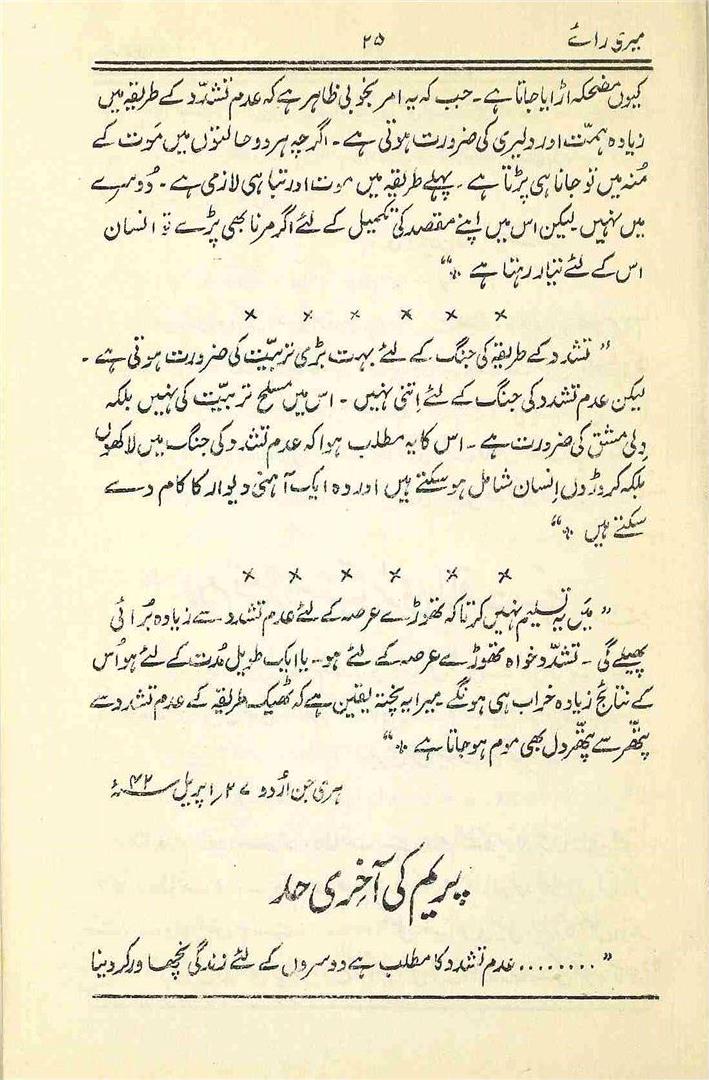 میری رائے ۲۵
کیوں مضحکہ اڑایا جاتا ہے ۔ جب کہ یہ امر بخوبی ظاہر ہے کہ عدم تشدّد کے طریقہ میں
زیادہ ہمّت اور دلیری کی ضرورت ہوتی ہے ۔ اگرچہ ہر دو حالتوں میں مَوت کے
مُنہ میں تو جانا ہی پڑتا ہے ۔ پہلے طریقہ میں موت اور تباہی لازمی ہے ۔ دُوسرے
میں نہیں لیکن اس میں اپنے مقصد کی تکمیل کے لئے اگر مرنا بھی پڑے تو انسان
اس کے لئے تیار رہتا ہے ؞“
× × × × × ×
” تشدد کے طریقہ کی جنگ کے لئے بہت بڑی تربیّت کی ضرورت ہوتی ہے ۔
لیکن عدم تشدد کی جنگ کے لئے اِتنی نہیں ۔ اس میں مسلح تربیّت کی نہیں بلکہ
دِلی مشق کی ضرورت ہے ۔ اس کا یہ مطلب ہوا کہ عدم تشدد کی جنگ میں لاکھوں
بلکہ کروڑوں اِنسان شامل ہو سکتے ہیں اور وہ ایک آہنی دیوار کا کام دے
سکتے ہیں ؞“
× × × × × ×
” مَیں یہ تسلیم نہیں کرتا کہ تھوڑے عرصہ کے لئے عدم تشدد سے زیادہ بُرائی
پھیلے گی ۔ تشدّد خواہ تھوڑے عرصہ کے لئے ہو ۔ یا ایک طویل مُدت کے لئے ہو اُس
کے نتائج زیادہ خراب ہی ہونگے ۔ میرا یہ پختہ یقین ہے کہ ٹھیک طریقہ کے عدم تشدد سے
پتھّر سے پتھّر دل بھی موم ہو جاتا ہے ؞“
ہری جن اُردو ۲۷ اپریل سنہ ۴۲ء
پریم کی آخری حد
” ........ عدم تشدد کا مطلب ہے دوسروں کے لئے زندگی نچھاور کر دینا